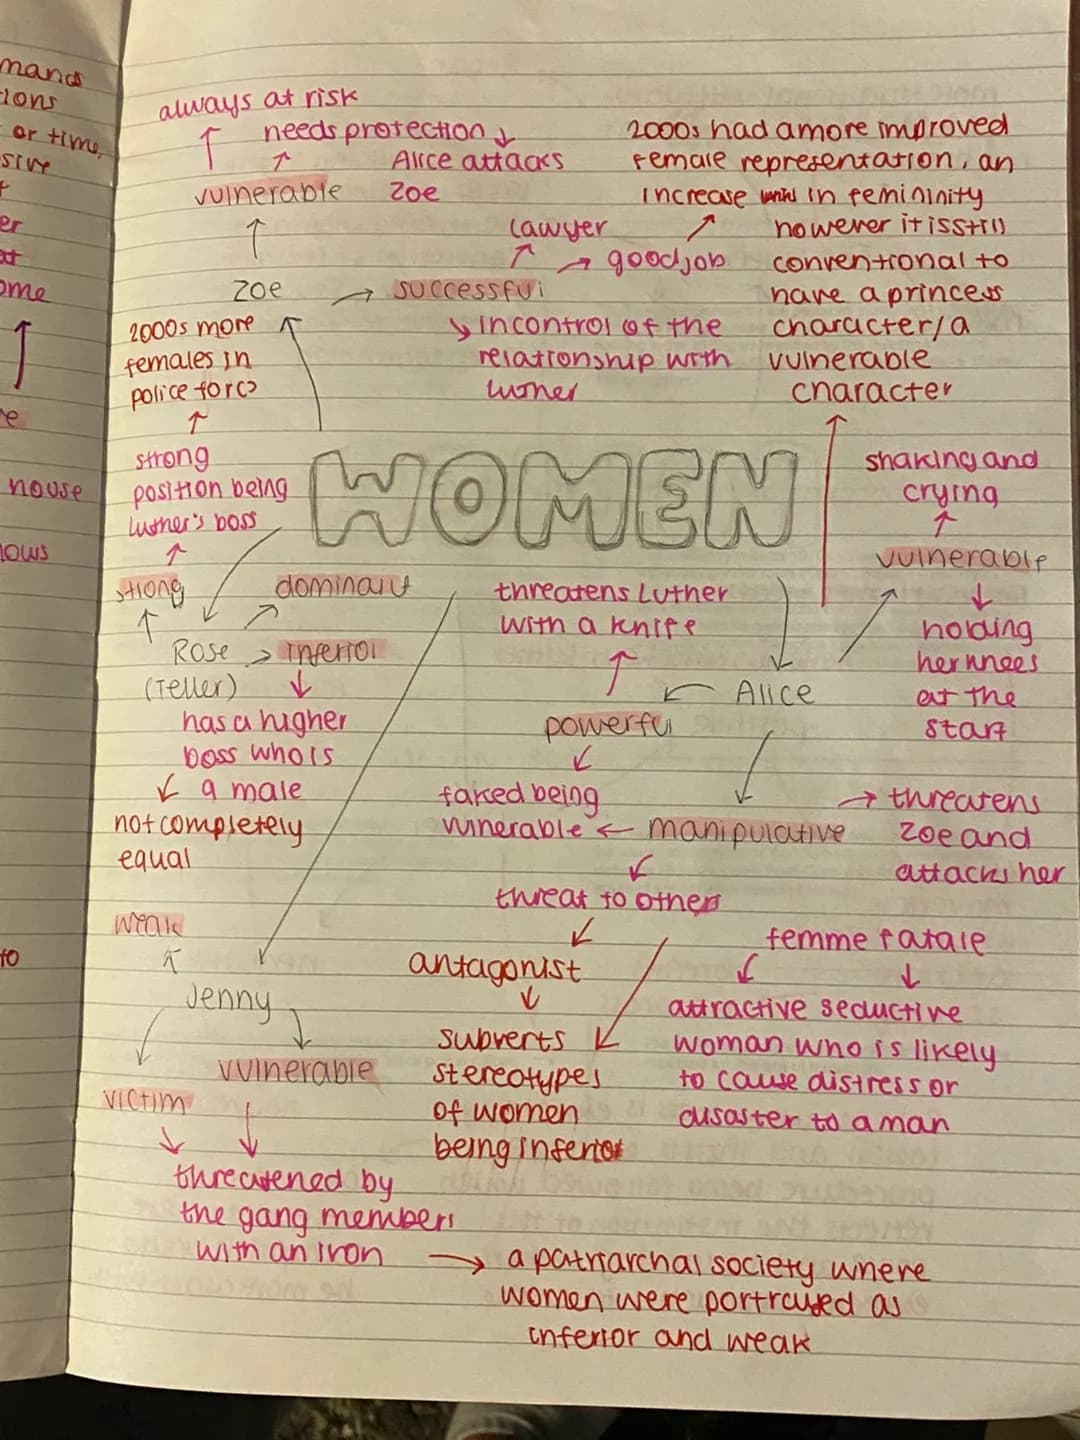 mands
tions
or time,
sive
er
at
ome
house
lows
to
always at risk
needs protection
Alice attacks
Zoe
vulnerable
2000s had a more improved
female representation, an
increase in femininity
however it is still
conventional to
have a princess
character/a
vulnerable
character
lawyer
good job
Zoe
successful
in control of the
relationship with
luther
2000s more
females in
police force
strong
position being
luther's boss
WOMEN
shaking and
crying
vulnerable
holding
her knees
at the
start
strong
dominant
Rose
(Teller)
inferior
has a higher
boss who is
a male
not completely
equal
threatens Luther
with a knife
Alice
powerful
faked being
vulnerable
manipulative
threatens
Zoe and
attacks her
threat to others
antagonist
subverts
stereotypes
of women
being inferior
femme fatale
attractive seductive
woman who is likely
to cause distress or
disaster to a man
weak
Jenny
vulnerable
victim
threatened by
the gang members
with an iron
a patriarchal society where
women were portrayed as
inferior and weak